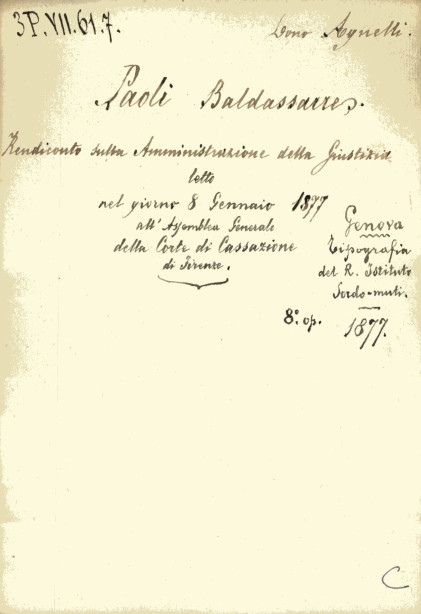 3P.VII.61.7.
Dono Agnelli.
Paoli Baldassarre.
Rendiconto sulla Amministrazione della Giustizia
letto
nel giorno 8 Gennaio 1877
all'Assemblea Generale
della Corte di Cassazione
di Firenze.
Genova
Tipografia
del R. Istituto
Sordo-muti.
8.° op. 1877.
C